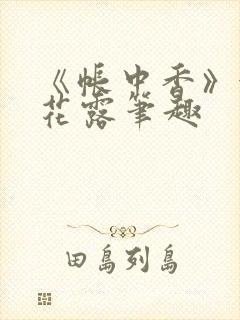 《帐中香》
花露笔趣
田岛列岛